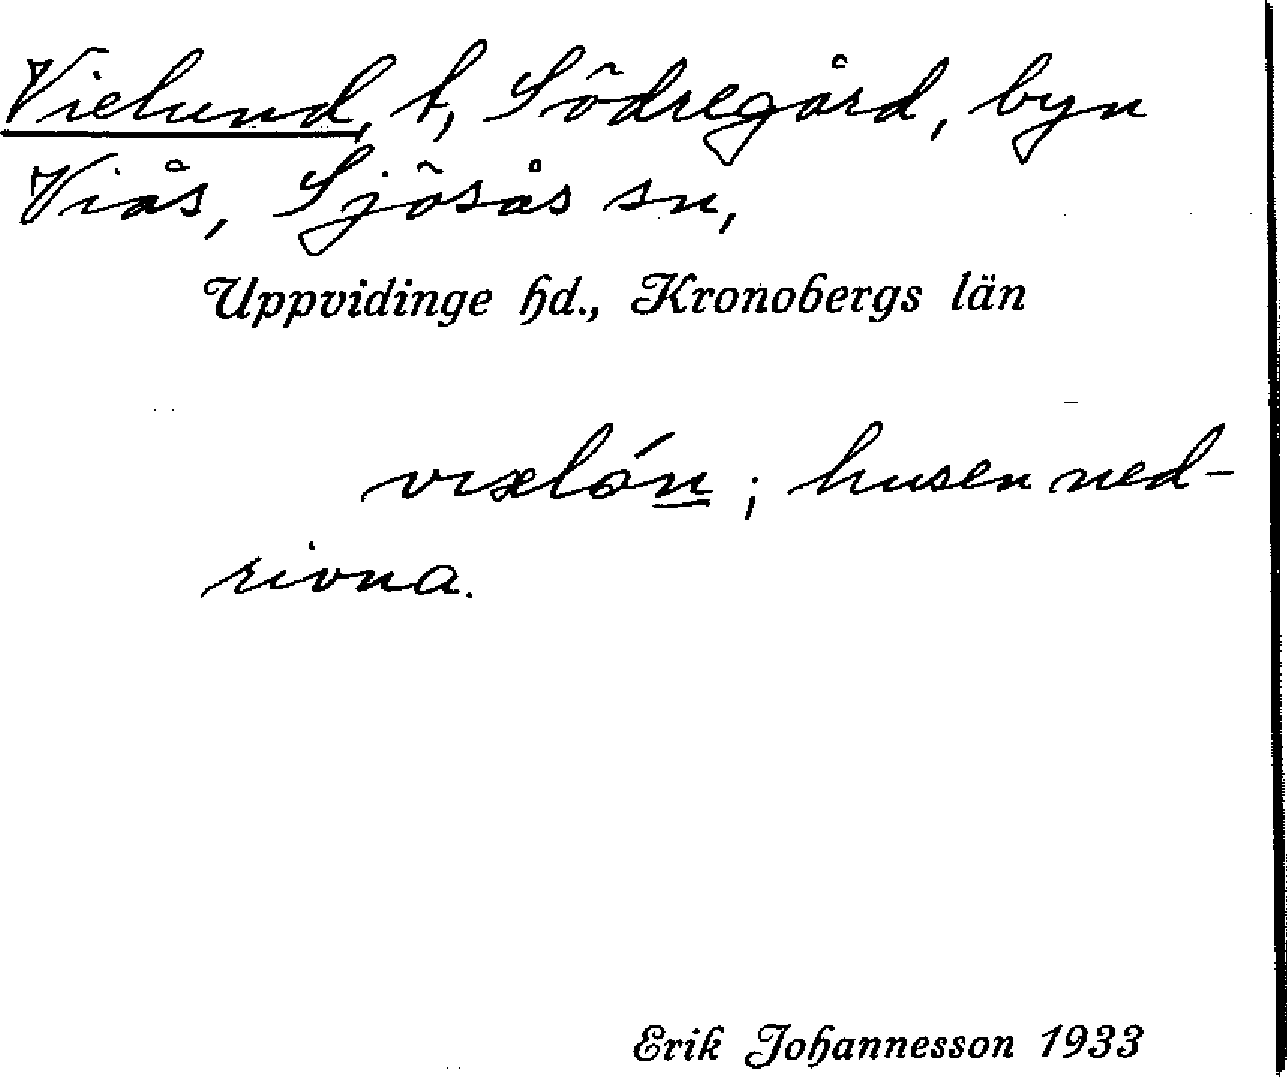 Vielund, t, Södregård, byn
Viås, Sjösås sn,
Uppvidinge hd., Kronobergs län
husen ned-
rivna.
Erik Johannesson 1933